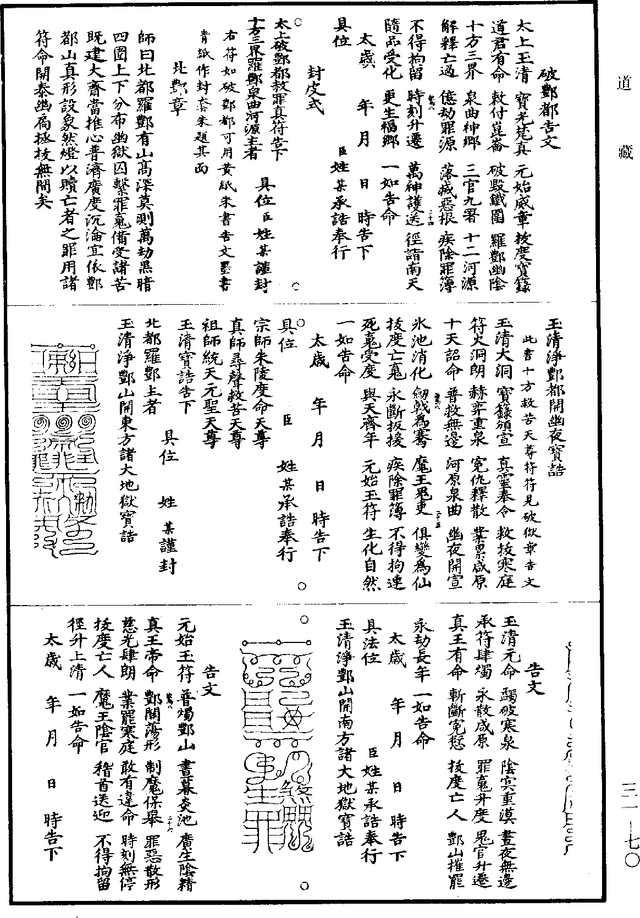 道藏
破酆都告文
太上玉清　寶光梵真　元始威章　拔度寶籙
道君有命　敕付崑崙　破毀鐵圍　羅酆幽陰
十方三界　泉曲神鄉　三官九署　十二河源
解釋亡過　億劫罪源　落滅惡根　疾除罪簿
不得拘留　時刻升遷　萬神護送　徑詣南天
隨品受化　更生福鄉　一如告命
太歲　年　月　日　時告下
具位　臣姓某承誥奉行
封皮式
太上破酆都救罪真符告下
十方三界羅酆泉曲河源主者　具位臣姓某謹封
右符如破酆都可用黃紙朱書告文墨書
青紙作封套朱題其面
北酆章
師曰北都羅酆有山高深莫測萬劫黑暗
四圍上下分布幽獄囚繫罪䰟備受諸苦
既建大齋當推心普濟廣度沉淪宜依酆
都山真形設象然燈以贖亡者之罪用諸
符命開泰幽扃拯拔無間矣
玉清淨酆都開幽夜寶誥
此書十方救苦天尊符符見破獄章告文
玉清大洞　寶籙頒宣　真靈奉令　救拔寒庭
符火洞朗　赫奕重泉　冤仇釋散　業累咸原
十天詔命　普救無邊　河原泉曲　幽夜開宣
氷池消化　劒戟為騫　魔王䰟吏　俱變為仙
拔度亡䰟　永斷扳援　疾除罪簿　不得拘連
死䰟受度　與天齊年　元始玉符　生化自然
一如告命
太歲　年　月　日　時告下
具位　臣　姓某承誥奉行
宗師朱陵度命天尊
真師尋聲救苦天尊
祖師統天元聖天尊
玉清寶誥告下
北都羅酆主者　具位　姓某謹封
玉清淨酆山開東方諸大地獄寶誥
告文
玉清元命　蠲破寒泉　陰冥重漠　晝夜無邊
承符肆燭　永散咸原　罪䰟升度　䰟官升遷
真王有命　斬斷冤愆　拔度亡人　酆山摧罷
永劫長年　一如告命
太歲　年　月　日　時告下
具法位　臣姓某承誥奉行
玉清淨酆山開南方諸大地獄寶誥
告文
元始玉符　普燭酆山　晝幕炎池　廣生陰精
真王帝命　酆關蕩形　制魔保舉　罪惡散形
慈光肆朗　業罷寒庭　敢有違命　時刻無停
拔度亡人　魔王陰官　稽首送迎　不得拘留
徑升上清　一如告命
太歲　年　月　日　時告下
三一—七〇